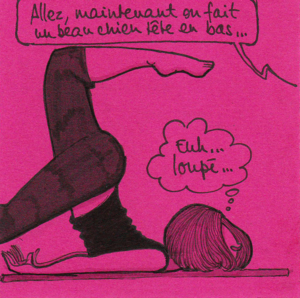 Allez, maintenant on fait
un beau chien tête en bas...
Euh...
loupé...